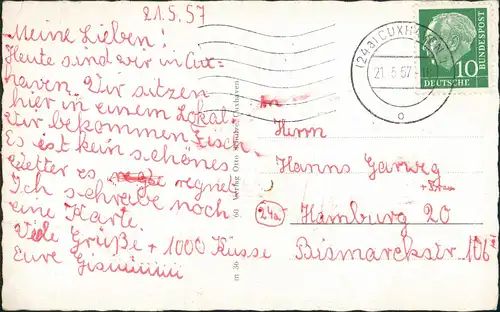 21.5.57
Meine Lieben!
Heute sind wir in Cux-
haven. Wir sitzen
hier in einem Lokal.
Wir bekommen Fisch.
Es ist kein schönes
Wetter es regnet
Ich schreibe noch
eine Karte.
Viele Grüße + 1000 Küsse
Eure
(24a) CUXHAVEN
21.5.57
DEUTSCHE BUNDESPOST
10
Herrn
Hanns Garweg
(24a) Hamburg 20
Bismarckstr. 106
m 36 60 Verlag Otto